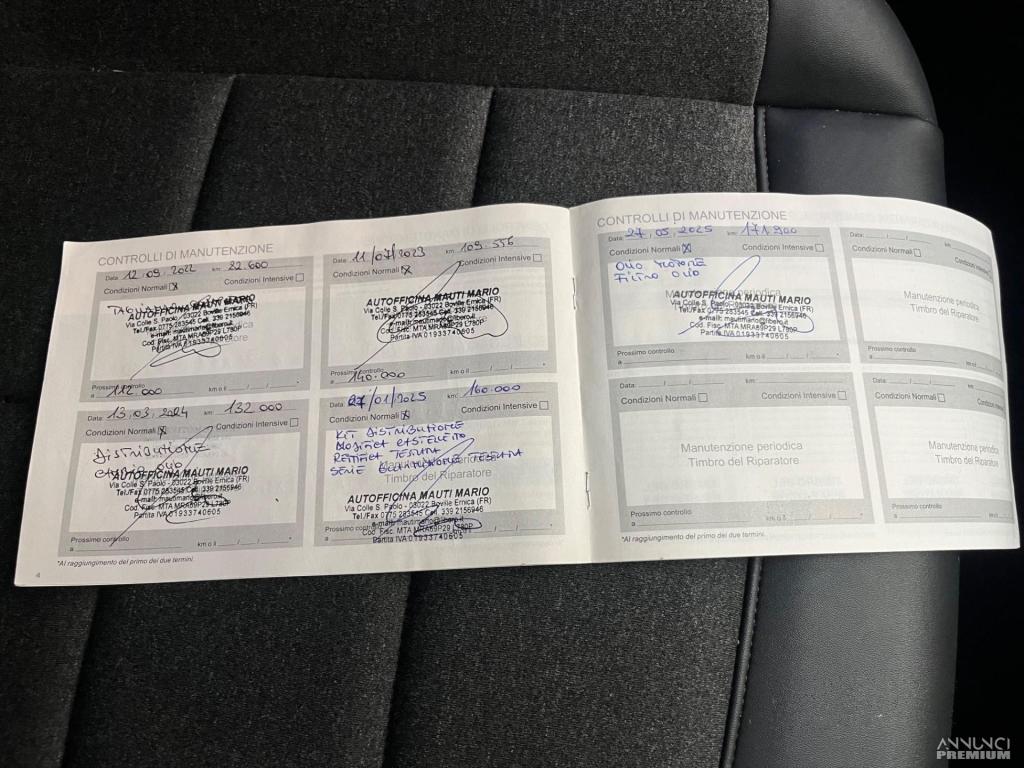 CONTROLLI DI MANUTENZIONE
Data 12.09.2022 km: 22.600
Condizioni Normali X Condizioni Intensive
AUTOFFICINA MAUTI MARIO
Via Colle S. Paolo - 03022 Boville Ernica (FR)
Tel./Fax 0775 283545 Cell. 339 2156946
e-mail: mautimario@libero.it
Cod. Fisc. MTA MRA69P29 L780P
Partita IVA 01933740605
Prossimo controllo
a 112.000 km o il / /
Data: 11/07/2023 km: 109.556
Condizioni Normali X Condizioni Intensive
AUTOFFICINA MAUTI MARIO
Via Colle S. Paolo - 03022 Boville Ernica (FR)
Tel./Fax 0775 283545 Cell. 339 2156946
e-mail: mautimario@libero.it
Cod. Fisc. MTA MRA69P29 L780P
Partita IVA 01933740605
Prossimo controllo
a 140.000 km o il / /
Data: 13.03.2024 km: 132 000
Condizioni Normali X Condizioni Intensive
DISTRIBUZIONE
OLIO
AUTOFFICINA MAUTI MARIO
Via Colle S. Paolo - 03022 Boville Ernica (FR)
Tel./Fax 0775 283545 Cell. 339 2156946
e-mail: mautimario@libero.it
Cod. Fisc. MTA MRA69P29 L780P
Partita IVA 01933740605
Prossimo controllo
a km o il / /
Data: /01/2025 km: 160.000
Condizioni Normali X Condizioni Intensive
KIT DISTRIBUZIONE
RETTIFICA TESTATA
SERIE GUARNIZIONE TESTATA
Manutenzione periodica
Timbro del Riparatore
AUTOFFICINA MAUTI MARIO
Via Colle S. Paolo - 03022 Boville Ernica (FR)
Tel./Fax 0775 283545 Cell. 339 2156946
e-mail: mautimario@libero.it
Cod. Fisc. MTA MRA69P29 L780P
Partita IVA 01933740605
Prossimo controllo
a km o il / /
*Al raggiungimento del primo dei due termini.
4
CONTROLLI DI MANUTENZIONE
Data: 27.05.2025 km: 171900
Condizioni Normali X Condizioni Intensive
OLIO MOTORE
FILTRO OLIO
Manutenzione periodica
AUTOFFICINA MAUTI MARIO
Via Colle S. Paolo - 03022 Boville Ernica (FR)
Tel./Fax 0775 283545 Cell. 339 2156946
e-mail: mautimario@libero.it
Cod. Fisc. MTA MRA69P29 L780P
Partita IVA 01933740605
Prossimo controllo
a km o il / /
Data: / / km:
Condizioni Normali Condizioni
Manutenzione periodica
Timbro del Riparatore
Prossimo controllo
a km o il / /
Data: / / km:
Condizioni Normali Condizioni Intensive
Manutenzione periodica
Timbro del Riparatore
Prossimo controllo
a km o il / /
Data: / / km:
Condizioni Normali Condizioni Intens
Manutenzione periodica
Timbro del Riparatore
Prossimo controllo
a km o il / /
*Al raggiungimento del primo dei due termini.
ANNUNCI
PREMIUM